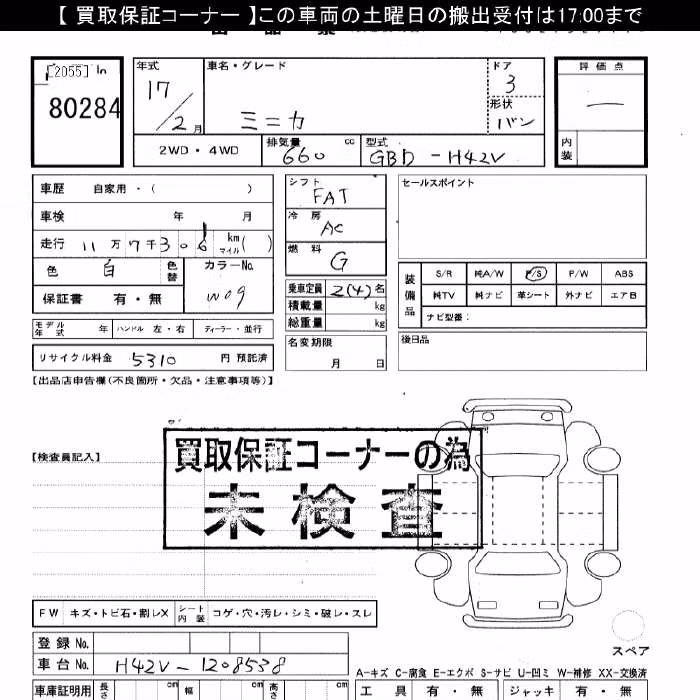 【 買取保証コーナー 】この車両の土曜日の搬出受付は17:00まで
[2055] In
80284
年式 車名・グレード ドア 評価点
17 / 2月 ミニカ 3 —
形状 バン
2WD・4WD 排気量 660 cc 型式 GBD-H42V 内装
車歴 自家用・( ) シフト FAT セールスポイント
車検 年 月 冷房 AC
走行 11万7千306 km マイル ( ) 燃料 G
色 白 色替 カラーNo. W09
装備品 S/R 純A/W P/S P/W ABS
保証書 有・無 乗車定員 2(4)名 純TV 純ナビ 革シート 外ナビ エアB
積載量 kg ナビ型番:
総重量 kg
モデル年式 年 ハンドル 左・右 ディーラー・並行 名変期限 月 日 後日品
リサイクル料金 5310 円 預託済
【出品店申告欄(不良箇所・欠品・注意事項等)】
【検査員記入】
買取保証コーナーの為
未検査
FW キズ・トビ石・割レX シート内装 コゲ・穴・汚レ・シミ・破レ・スレ
登録 No.
スペア
車台 No. H42V-1208538
A-キズ C-腐食 E-エクボ S-サビ U-凹ミ W-補修 XX-交換済
車庫証明用 長さ cm 幅 cm 高さ cm 工具 有・無 ジャッキ 有・無